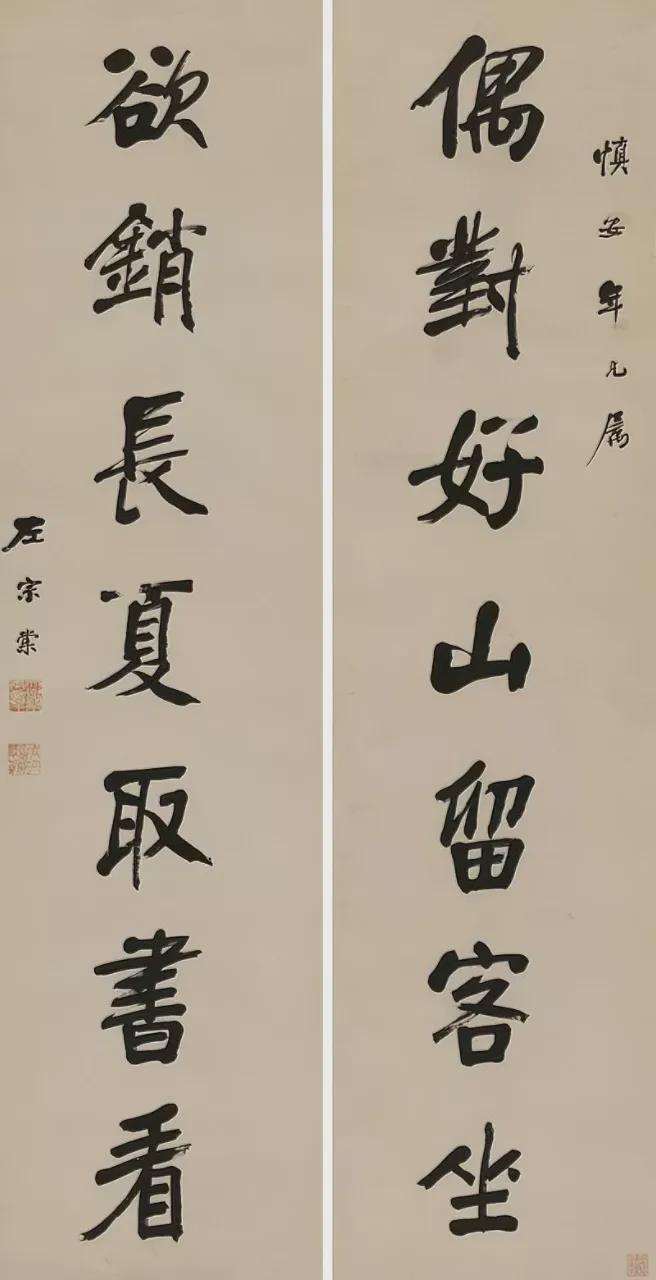 慎安年兄屬
偶對好山留客坐
欲銷長夏取書看
左宗棠